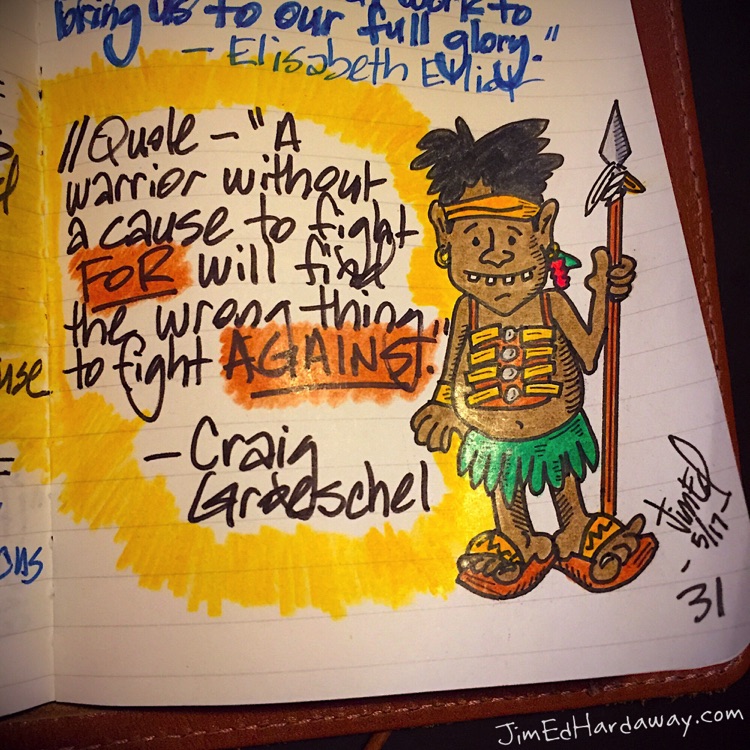 work to
bring us to our full glory."
— Elisabeth Elliot
//Quote — "A
warrior without
a cause to fight
FOR will find
the wrong thing
to fight AGAINST."
— Craig
Groeschel
use
ons
JimEd
5/17
- 31
JimEdHardaway.com